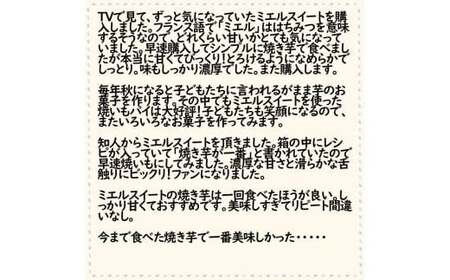 TVで見て、ずっと気になっていたミエルスイートを購
入しました。フランス語で「ミエル」ははちみつを意味
するそうなので、どれくらい甘いかとても気になって
いました。早速購入してシンプルに焼き芋で食べまし
たが本当に甘くてびっくり!とろけるようになめらかで
しっとり。味もしっかり濃厚でした。また購入します。
毎年秋になると子どもたちに言われるがまま芋のお
菓子を作ります。その中でもミエルスイートを使った
焼いもパイは大好評!子どもたちも笑顔になるので、
またいろいろなお菓子を作ってみます。
知人からミエルスイートを頂きました。箱の中にレシ
ピが入っていて「焼き芋が一番」と書かれていたので
早速焼いもにしてみました。濃厚な甘さと滑らかな舌
触りにビックリ!ファンになりました。
ミエルスイートの焼き芋は一回食べたほうが良い。し
っかり甘くておすすめです。美味しすぎてリピート間違
いなし。
今まで食べた焼き芋で一番美味しかった・・・・・